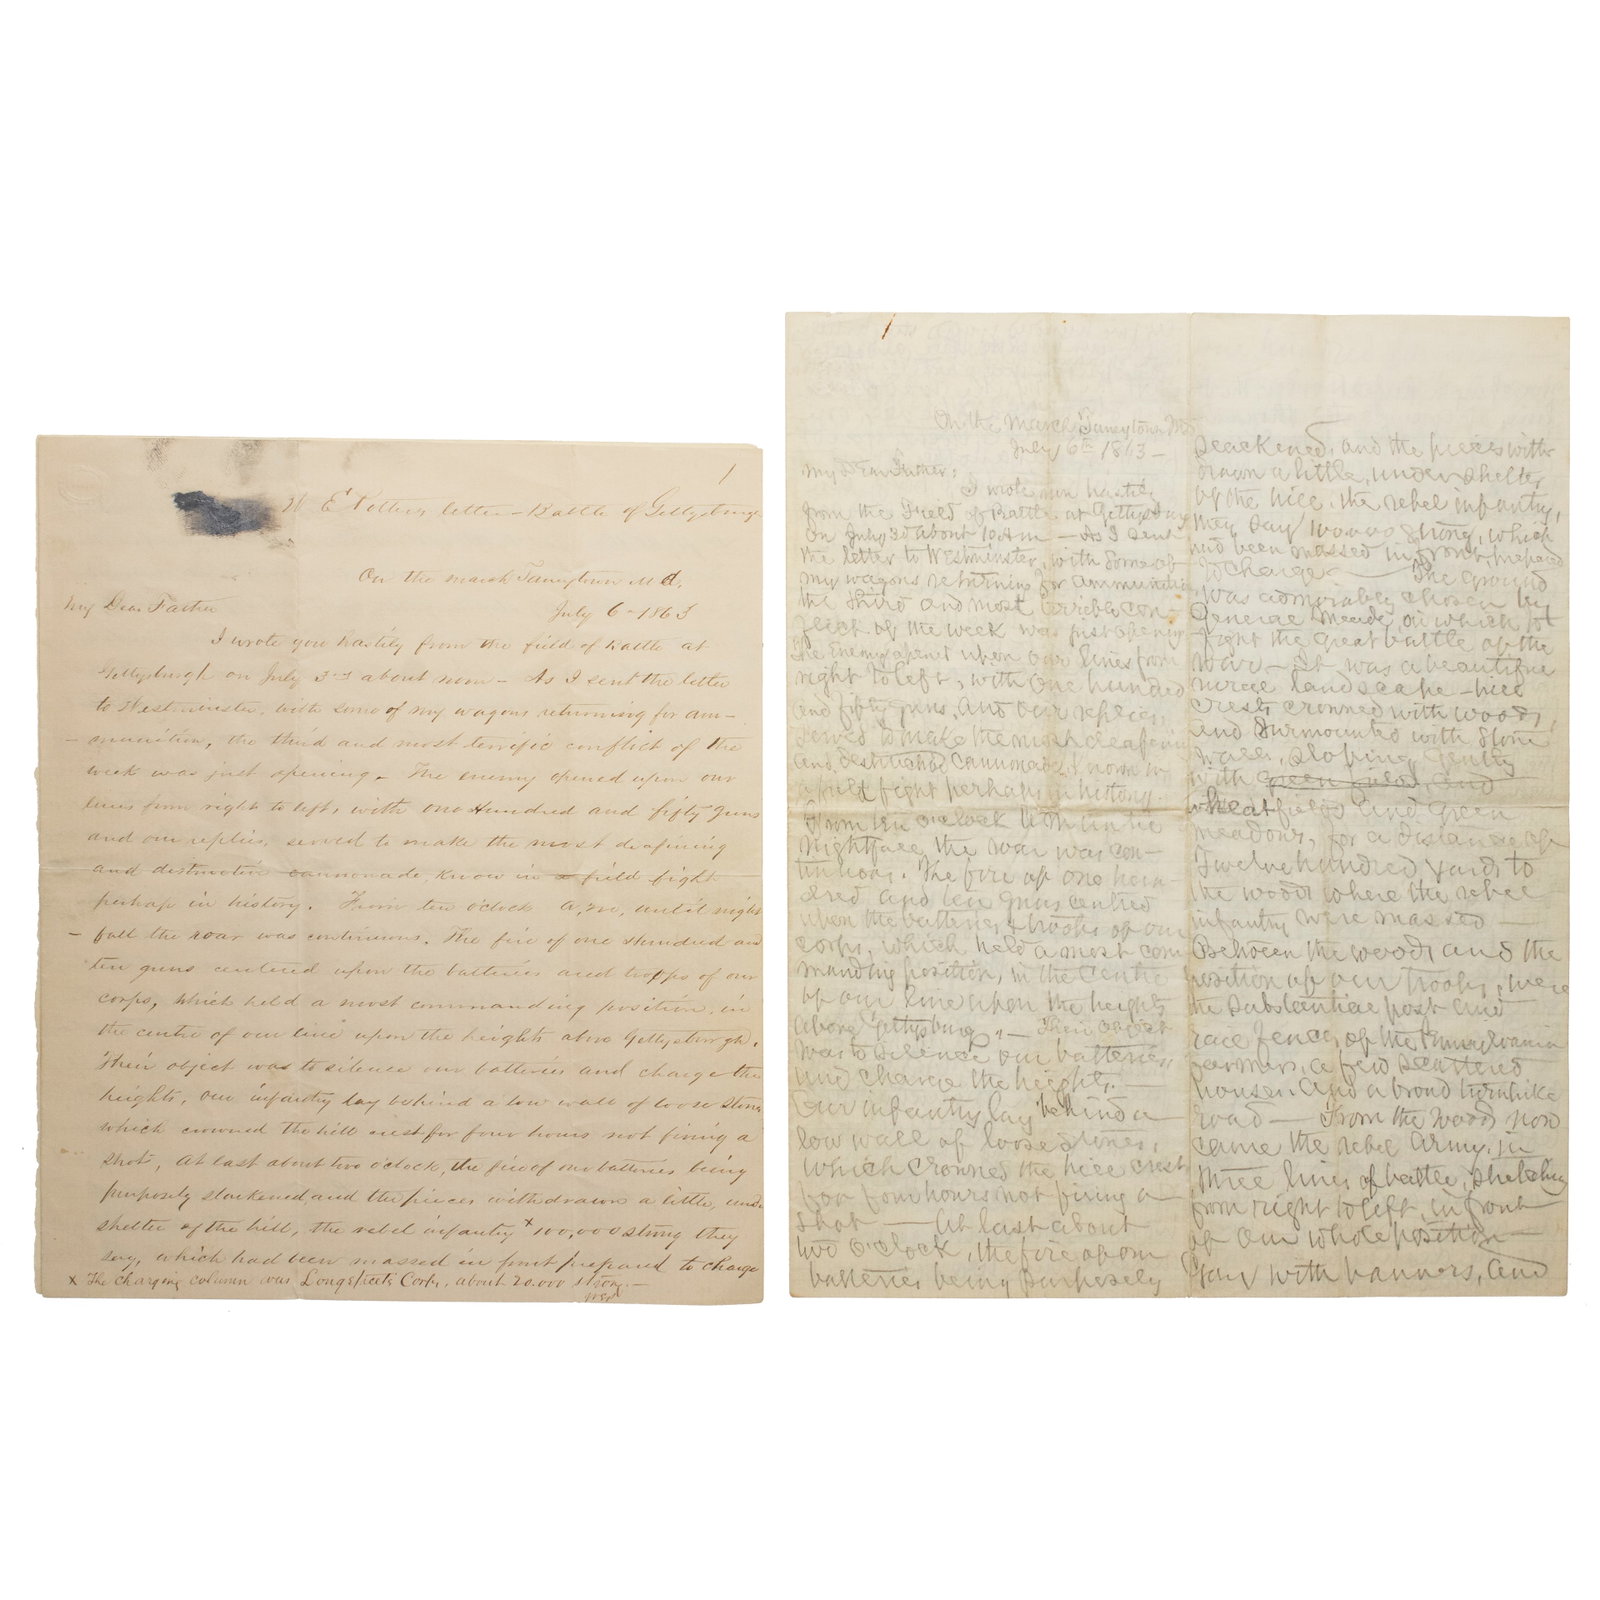 1
W E Potters letter – Battle of Gettysburg
On the march Taneytown Md.
My Dear Father
July 6 – 1863
I wrote you hastily from the field of Battle at
Gettysburgh on July 3rd about noon – As I sent the letter
to Westminister, with some of my wagons returning for am–
– munition, the third and most terrific conflict of the
week was just opening – The enemy opened upon our
lines from right to left, with one Hundred and fifty guns
and our replies, served to make the most deafining
and destructive cannonade, know in a field fight
perhap in history. From ten oclock A,m, until night
– fall the roar was continuous. The fire of one Hundred and
ten guns centered upon the batteries and troops of our
corps, which held a most commanding position, in
the centre of our line upon the heights above Gettysburgh.
Their object was to silence our batteries and charge the
heights, our infantry lay behind a low wall of loose stone
which crowned the hill crest for four hours not firing a
shot, At last about two o'clock, the fire of our batteries being
purposely slackened and the pieces withdrawn a little, under
shelter of the hill, the rebel infantry x 100,000 strong they
say, which had been massed in front prepared to charge
x The charging column was Longstreet's Corps, about 20.000 strong. –
WEP
On the March Taneytown Md
July 6th 1863 –
My Dear Father:
I wrote you hastily
from the Field of Battle at Gettysburg
On July 3d about 10 AM – As I sent
the letter to Westminster, with some of
my wagons returning for ammunition
the third and most terrible con
flict of the week was just opening
The Enemy opened upon our lines from
right to left, with one hundred
and fifty guns, and our replies,
served to make the most deafening
and destructive cannonade, known in
a field fight perhaps in history.
From ten o'clock A M until
nightfall, the roar was con–
tinuous. The fire of one hun–
dred and ten guns centred
upon the batteries & troops of our
corps, which held a most com
manding position, in the centre
of our line upon the heights
above Gettysburg, – Their object
was to silence our batteries,
and charge the heights. –
Our infantry lay behind a
low wall of loose stones,
which crowned the hill crest
for four hours not firing a
shot — At last about
two o'clock, the fire of our
batteries being purposely
slackened, and the pieces with
drawn a little, under shelter
of the hill, the rebel infantry,
they say 100,000 strong, which
had been massed in front, prepared
to charge. — The ground
was admirably chosen by
General Meade, on which to
fight the great battle of the
war – It was a beautiful
rural landscape – hill
crests crowned with woods,
and surmounted with stone
walls, sloping gently
with green fields, and
wheatfields and green
meadows, for a distance of
Twelve hundred yards to
the woods where the rebel
infantry were massed –
Between the woods and the
position of our troops, were
the substantial post and
rail fences of the Pennsylvania
farmers, a few scattered
houses. And a broad turnpike
road — From the woods now
came the rebel army, in
three lines of battle, stretching
from right to left, in front
of our whole position –
Gay with banners, and